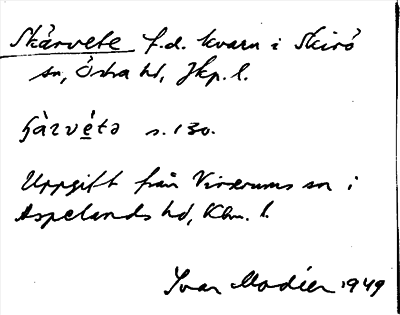 Skärvete f.d. kvarn i Skirö
sn, Östra hd, Jkp. l.
ʃàrvétə s. 130.
Uppgift från Virserums sn i
Aspelands hd, Klm. l.
Ivar Modéer 1949